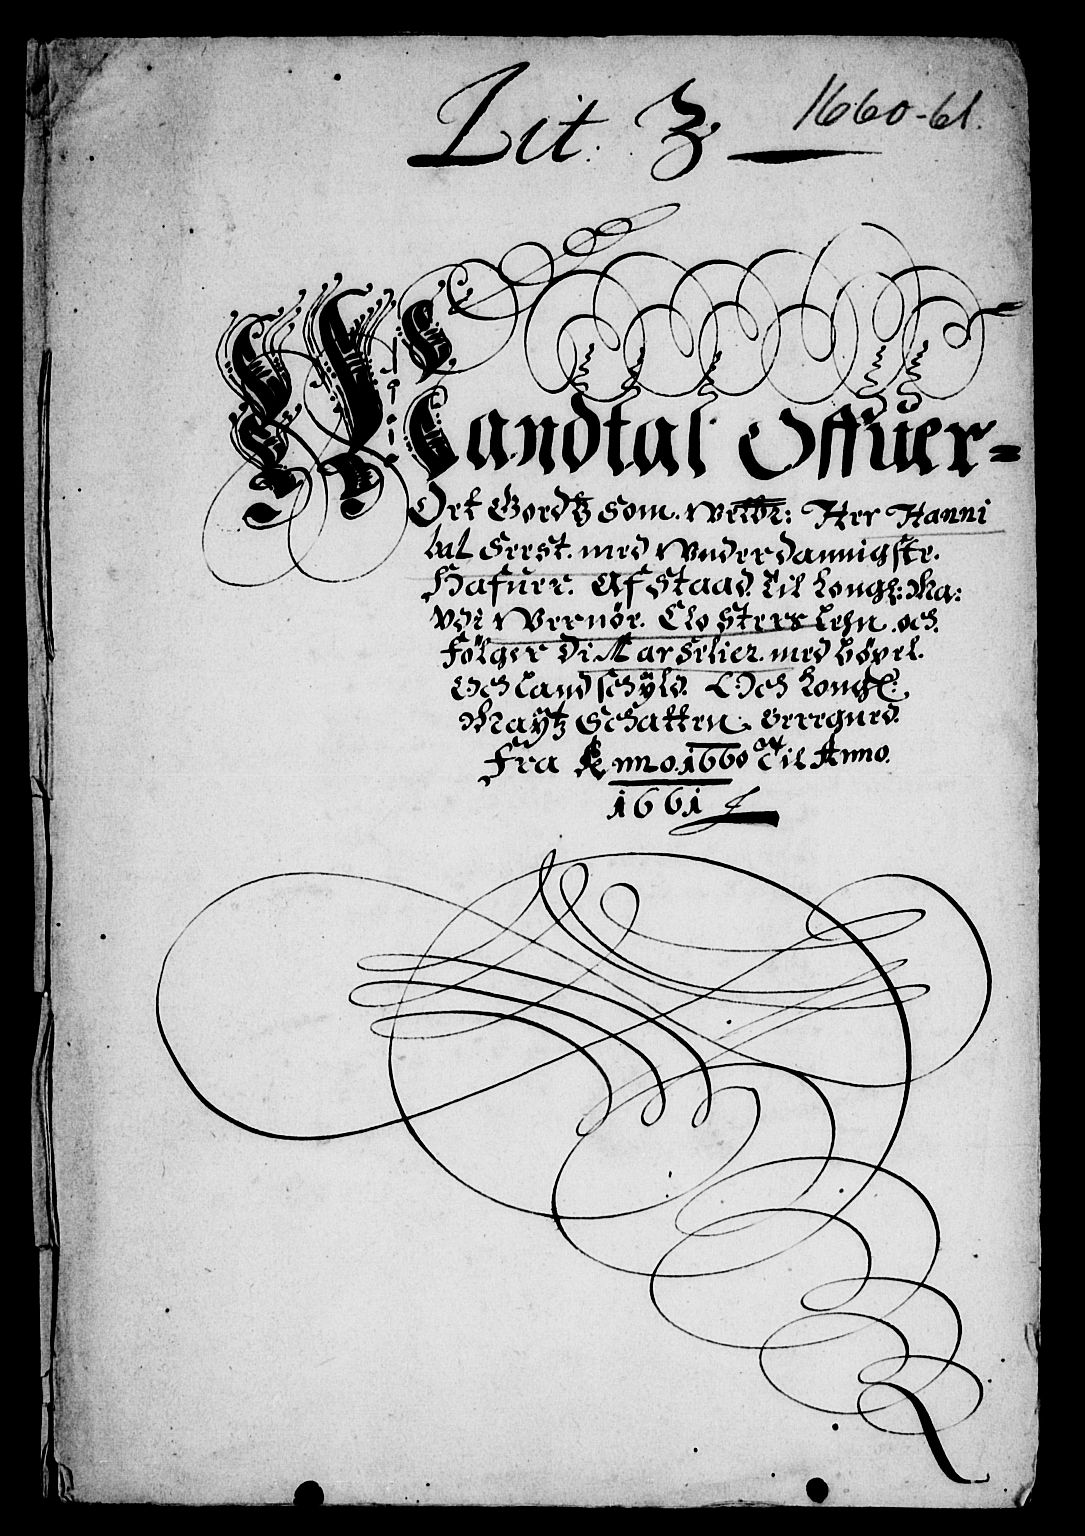 Lit: Z
1660-61.
Mandtal Offuer-
Ort Goedtz Som. Welbr: Her Hanni
bal Seest. med Vnderdannigste.
Hafuer. Af Staad. Til Kongl: Ma:
Vernør. Closters Lehn. och
følger Di Marselier. med bøxel.
Och Landschyld. Och Kongl:
Maytz Schatten. Beregned.
Fra Anno. 1660 Til Anno.
1661